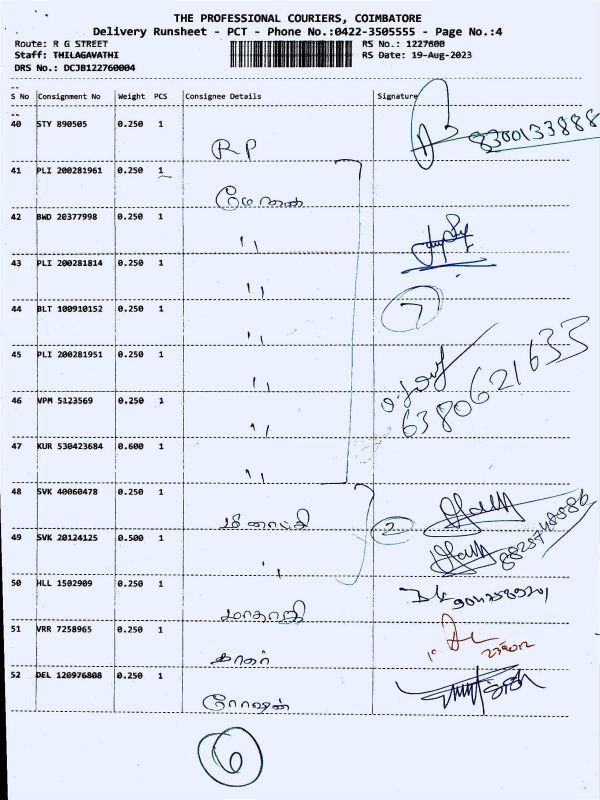 THE PROFESSIONAL COURIERS, COIMBATORE
Delivery Runsheet - PCT - Phone No.:0422-3505555 - Page No.:4
Route: R G STREET RS No.: 1227600
Staff: THILAGAVATHI RS Date: 19-Aug-2023
DRS No.: DCJB122760004
S No Consignment No Weight PCS Consignee Details Signature
40 STY 890505 0.250 1 RP 8300133888
41 PLI 200281961 0.250 1
42 BWD 20377998 0.250 1 ''
43 PLI 200281814 0.250 1 ''
44 BLT 100910152 0.250 1 '' 7
45 PLI 200281951 0.250 1 '' 6380621633
46 VPM 5123569 0.250 1 ''
47 KUR 530423684 0.600 1 ''
48 SVK 40060478 0.250 1 2
49 SVK 20124125 0.500 1 ''
50 HLL 1502909 0.250 1
51 VRR 7258965 0.250 1
52 DEL 120976808 0.250 1 ரோஷன்
6